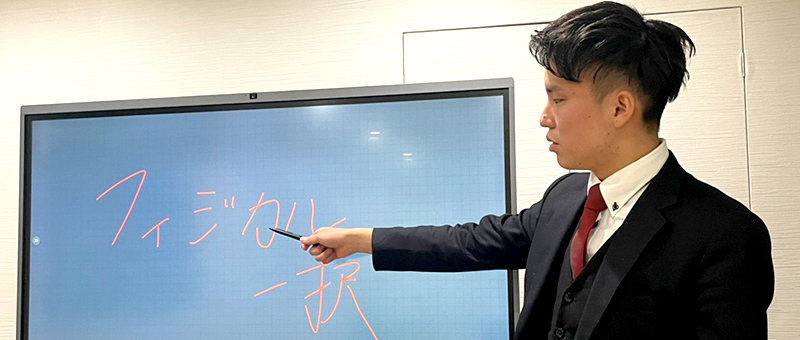 フィジカル
一択